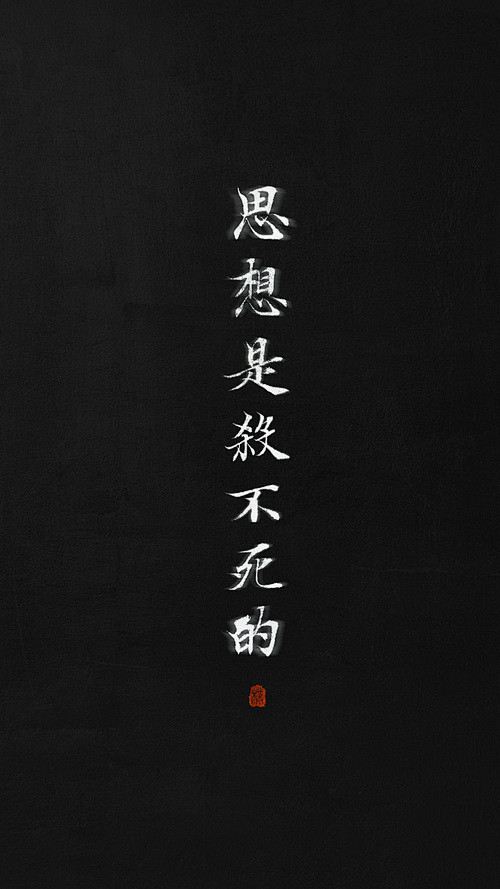 思想是殺不死的